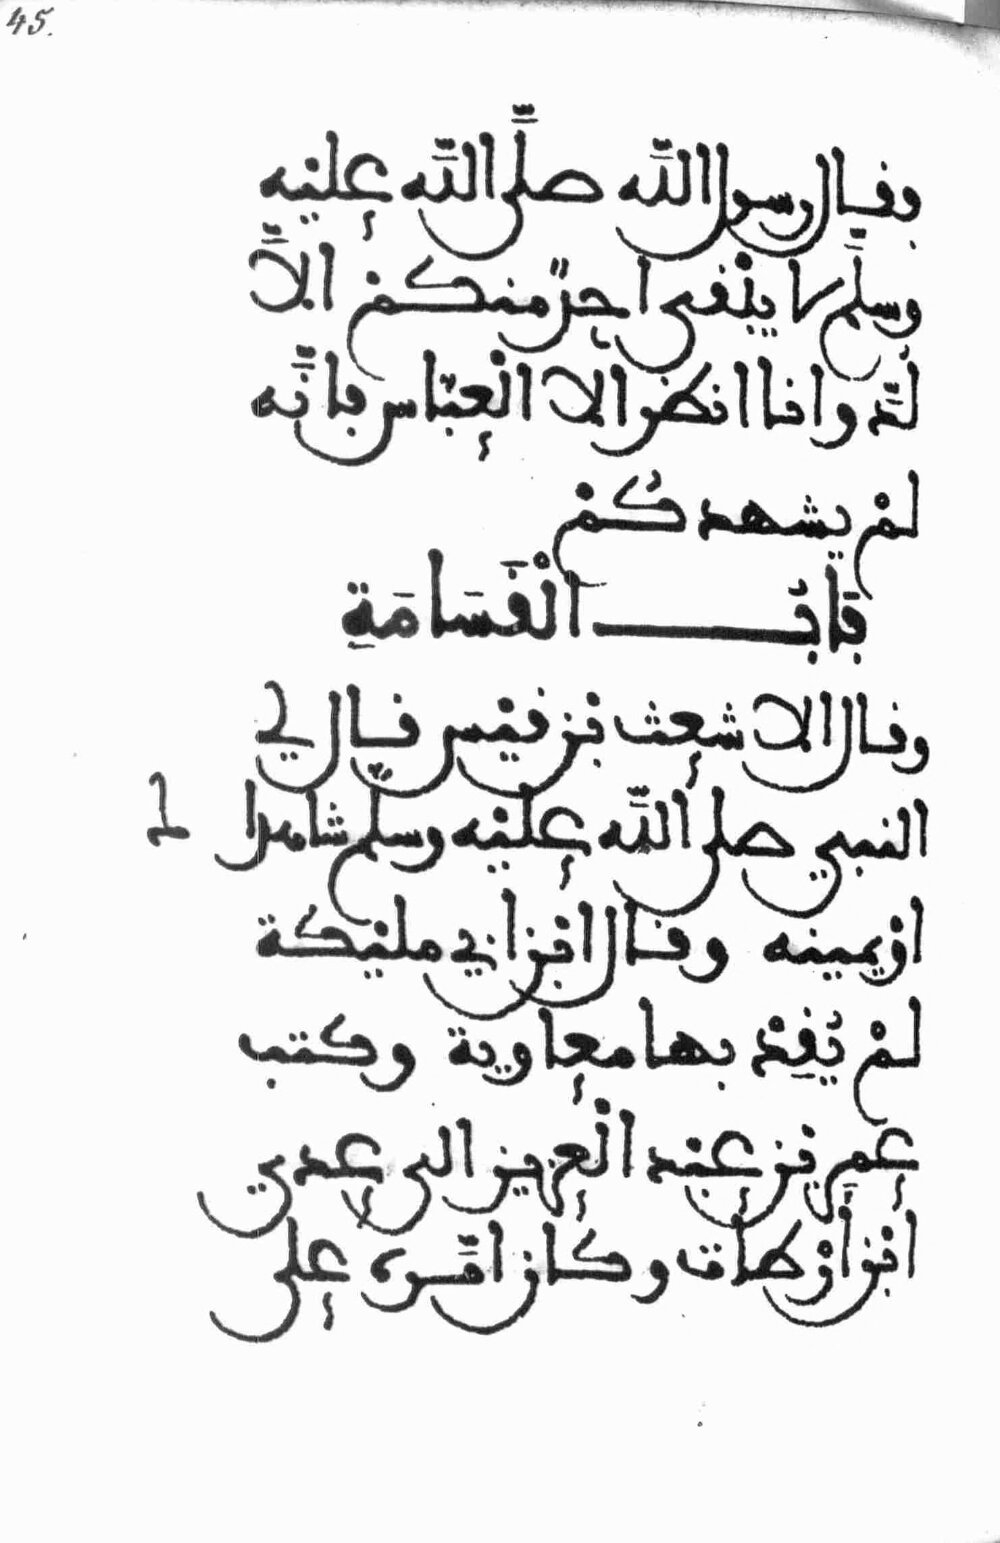 45.
وقال رسول الله صلَّى اللّه عليْه
وسلَّم لا يبْقى احدٌ منكمْ الاَّ
لُدَّ وانا انظر الا الْعبّاس فانّه
لمْ يشهدكُمْ
بَابُ الْقَسَامَةِ
وقال الاشعث بْن قيْس قال لي
النبي صلى اللّه عليْه وسلّم شاهدا ل
اوْ يمينه وقال ابْن ابي مليْكة
لمْ يُقِدْ بها معاوية وكتب
عمر بْن عبْد الْعزيز الى عدي
ابْن أرْطاة وكان امّره على